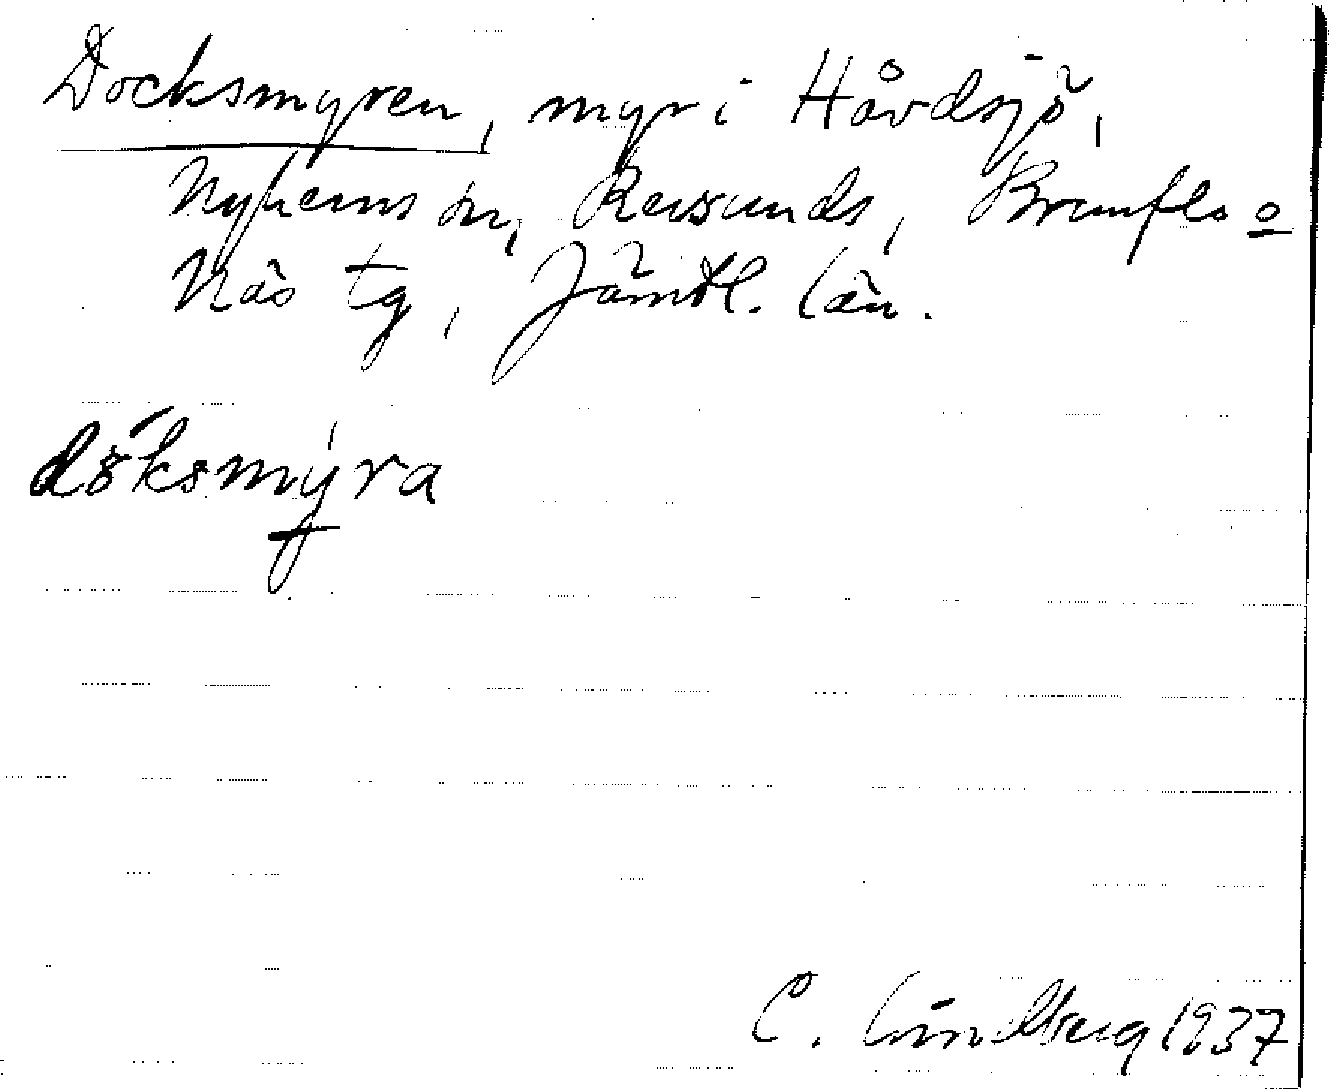 Docksmyren, myr i Håvdsjö,
Nyhems sn, Revsunds, Brunflo o
Näs tg, Jämtl. län.
dɷksmýra
C. Lindberg 1937